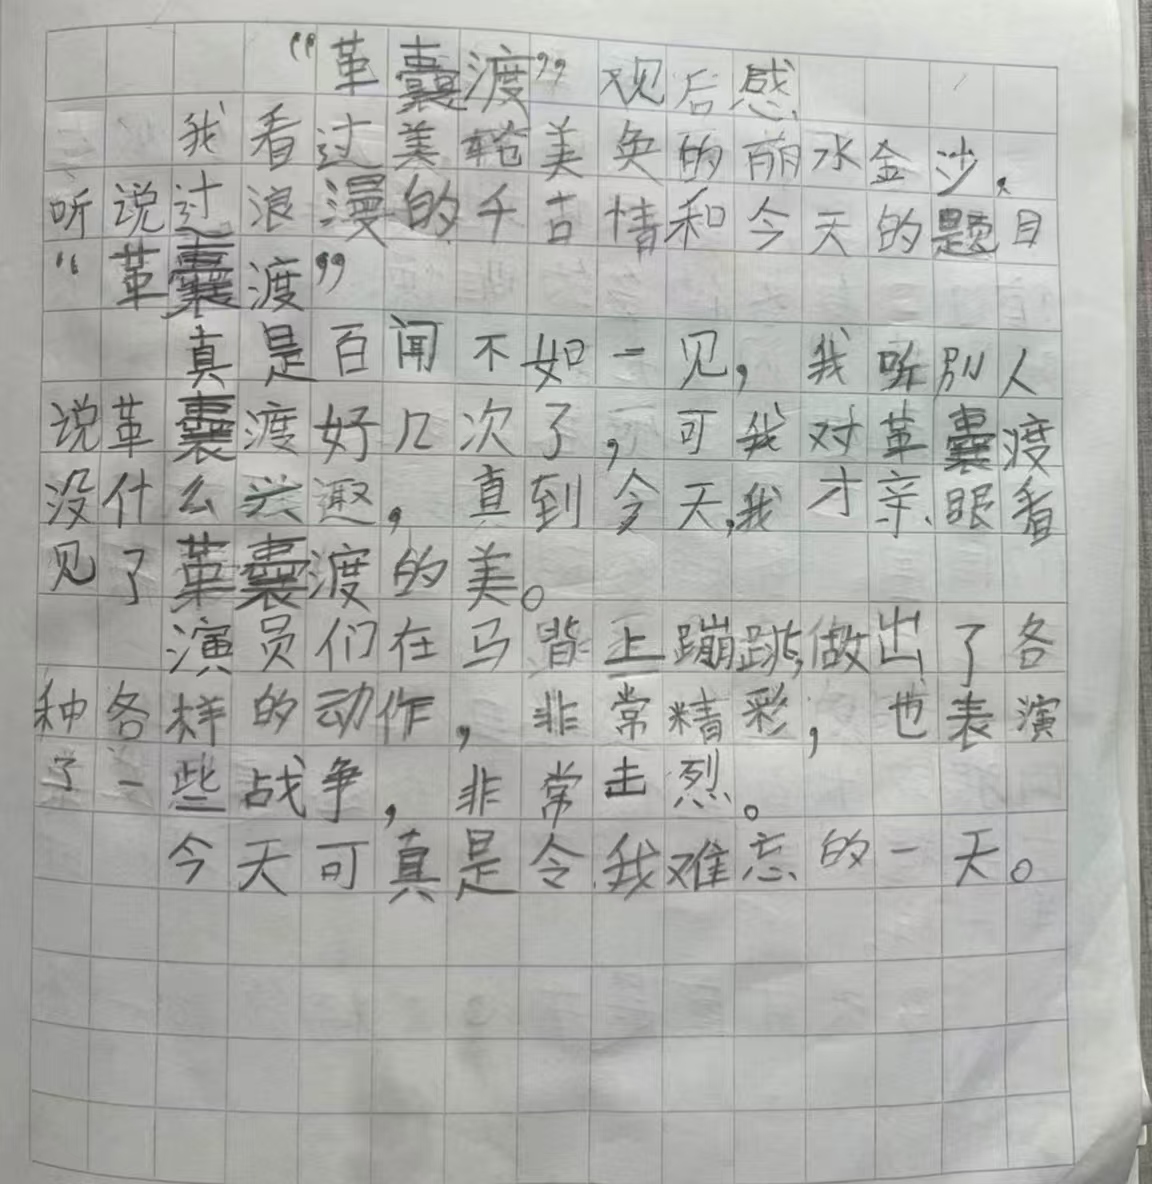 “革囊渡”观后感
我看过美轮美奂的丽水金沙，
听说过浪漫的千古情和今天的题目
“革囊渡”
真是百闻不如一见，我听别人
说革囊渡好几次了，可我对革囊渡
没什么兴趣，真到今天，我才亲眼看
见了革囊渡的美。
演员们在马背上蹦跳，做出了各
种各样的动作，非常精彩，也表演
了一些战争，非常击烈。
今天可真是令我难忘的一天。